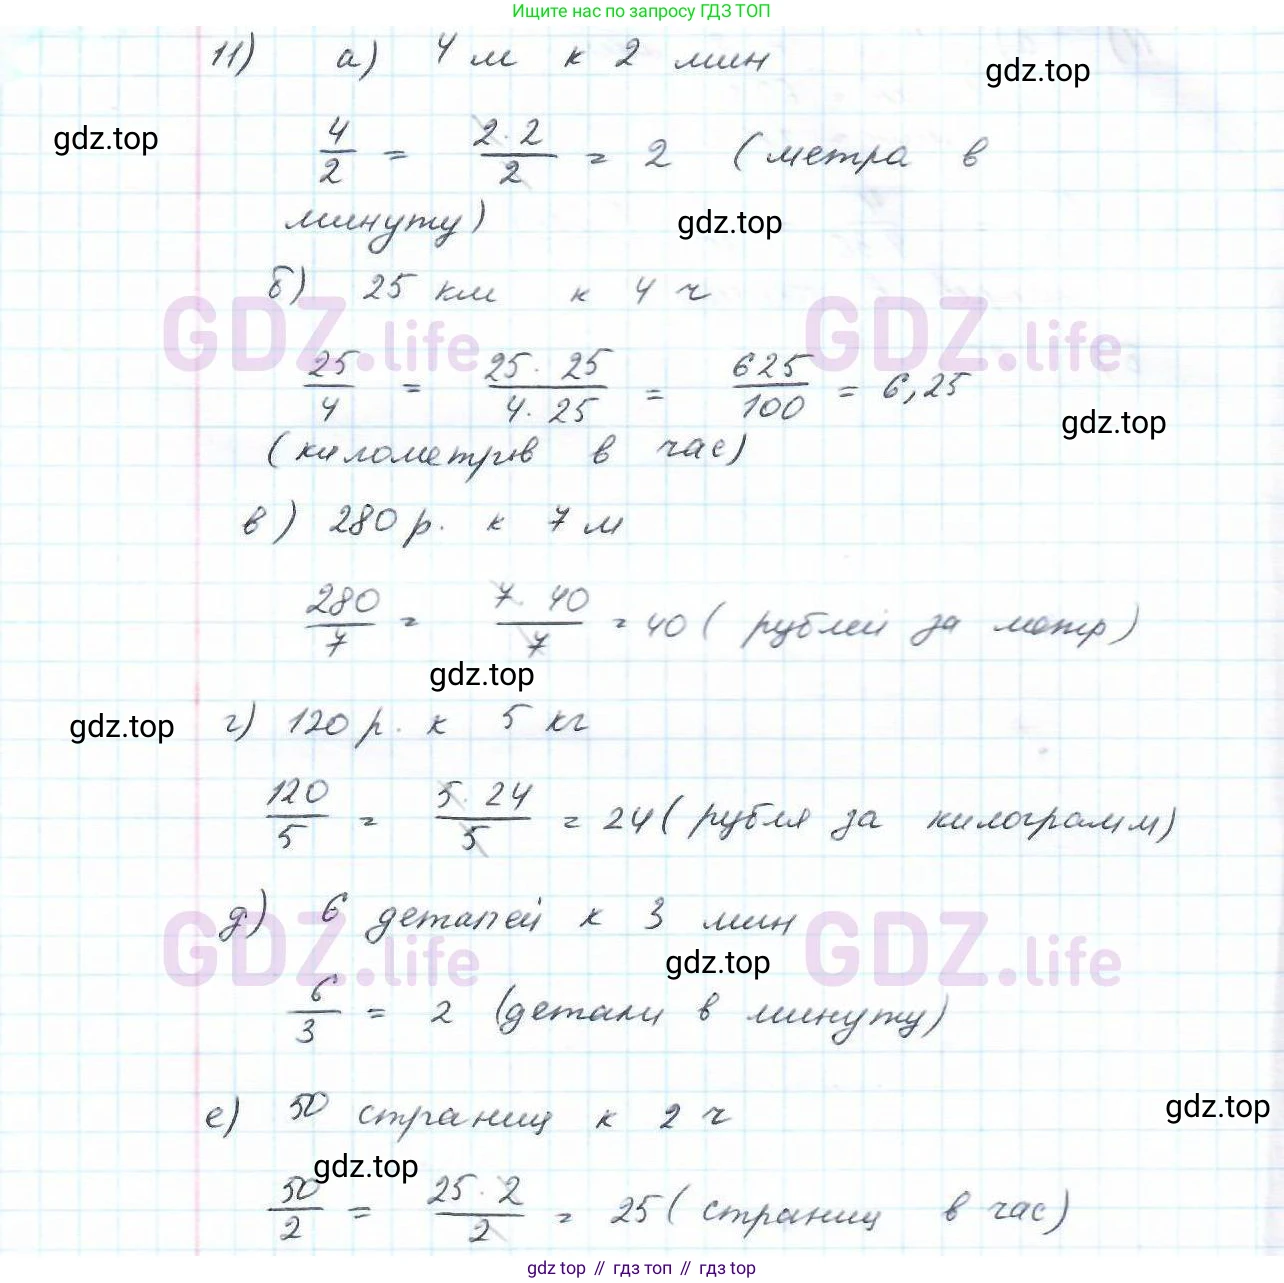 Ищите нас по запросу ГДЗ ТОП
11) а) 4 м к 2 мин
gdz.top
gdz.top
4/2 = 2·2/2 = 2 (метра в
минуту)
gdz.top
б) 25 км к 4 ч
GDZ.life GDZ.life
25/4 = 25·25/4·25 = 625/100 = 6,25
gdz.top
(километров в час)
в) 280 р. к 7 м
280/7 = 7·40/7 = 40 (рублей за метр)
gdz.top
gdz.top
г) 120 р. к 5 кг
120/5 = 5·24/5 = 24 (рубля за килограмм)
д) 6 деталей к 3 мин
GDZ.life GDZ.life
gdz.top
6/3 = 2 (детали в минуту)
е) 50 страниц к 2 ч
gdz.top
gdz.top
50/2 = 25·2/2 = 25 (страниц в час)
gdz top // гдз топ // гдз top